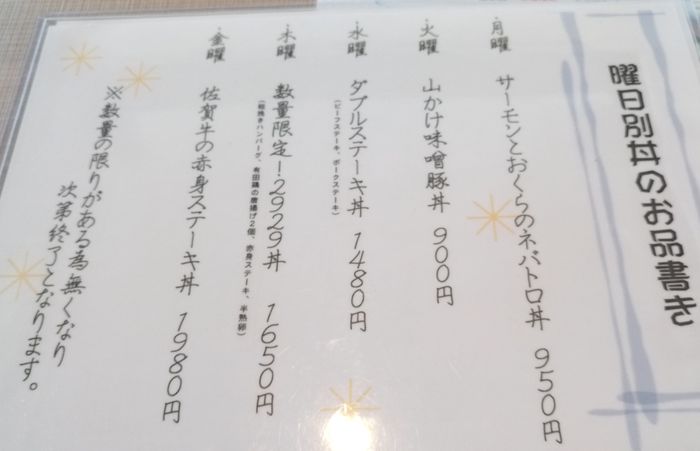 曜日別丼のお品書き
・月曜 サーモンとおくらのネバトロ丼 950円
・火曜 山かけ味噌豚丼 900円
・水曜 ダブルステーキ丼 1480円
(ビーフステーキ、ポークステーキ)
・木曜 数量限定!2929丼 1650円
(粗挽きハンバーグ、有田鶏の唐揚げ2個、赤身ステーキ、半熟卵)
・金曜 佐賀牛の赤身ステーキ丼 1980円
※数量の限りがある為無くなり
次第終了となります。